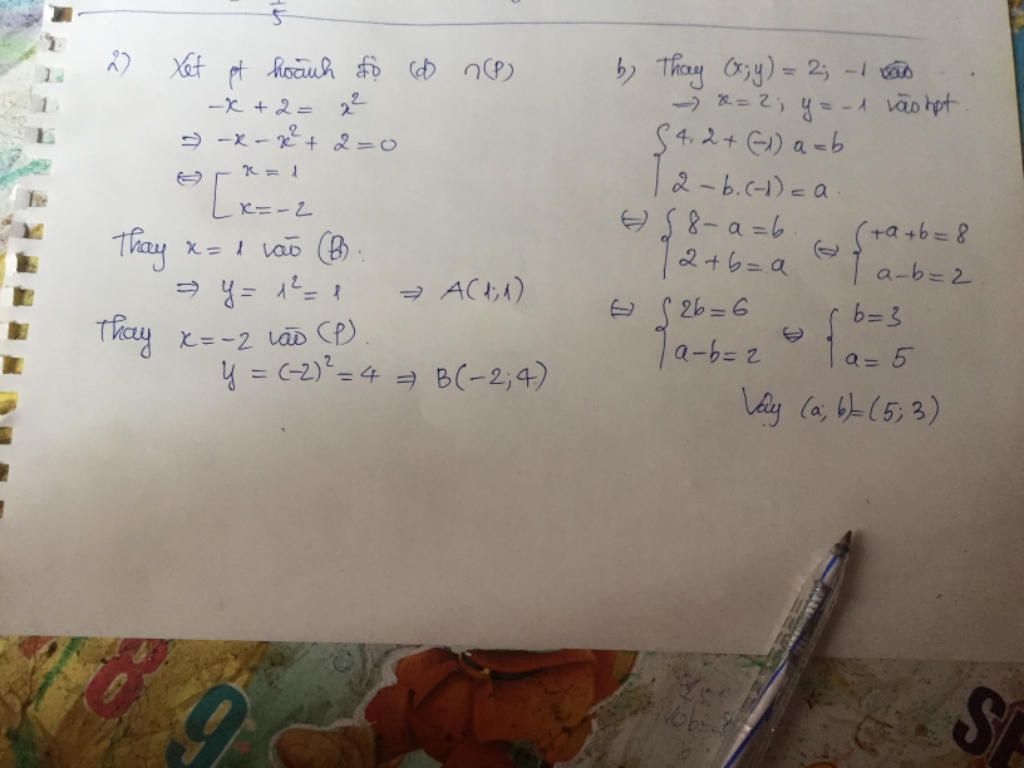 5
2) Xét pt hoành độ (d) ∩ (P)
-x + 2 = x²
⇒ -x - x² + 2 = 0
⇔ [ x = 1
x = -2
Thay x = 1 vào (P).
⇒ y = 1² = 1 ⇒ A(1;1)
Thay x = -2 vào (P).
y = (-2)² = 4 ⇒ B(-2;4)
b) Thay (x;y) = 2; -1
→ x = 2; y = -1 vào hpt.
{ 4.2 + (-1) a = b
2 - b.(-1) = a
⇔ { 8 - a = b ⇔ { +a + b = 8
2 + b = a a - b = 2
⇔ { 2b = 6 ⇔ { b = 3
a - b = 2 a = 5
Vậy (a; b) = (5; 3)
8
9